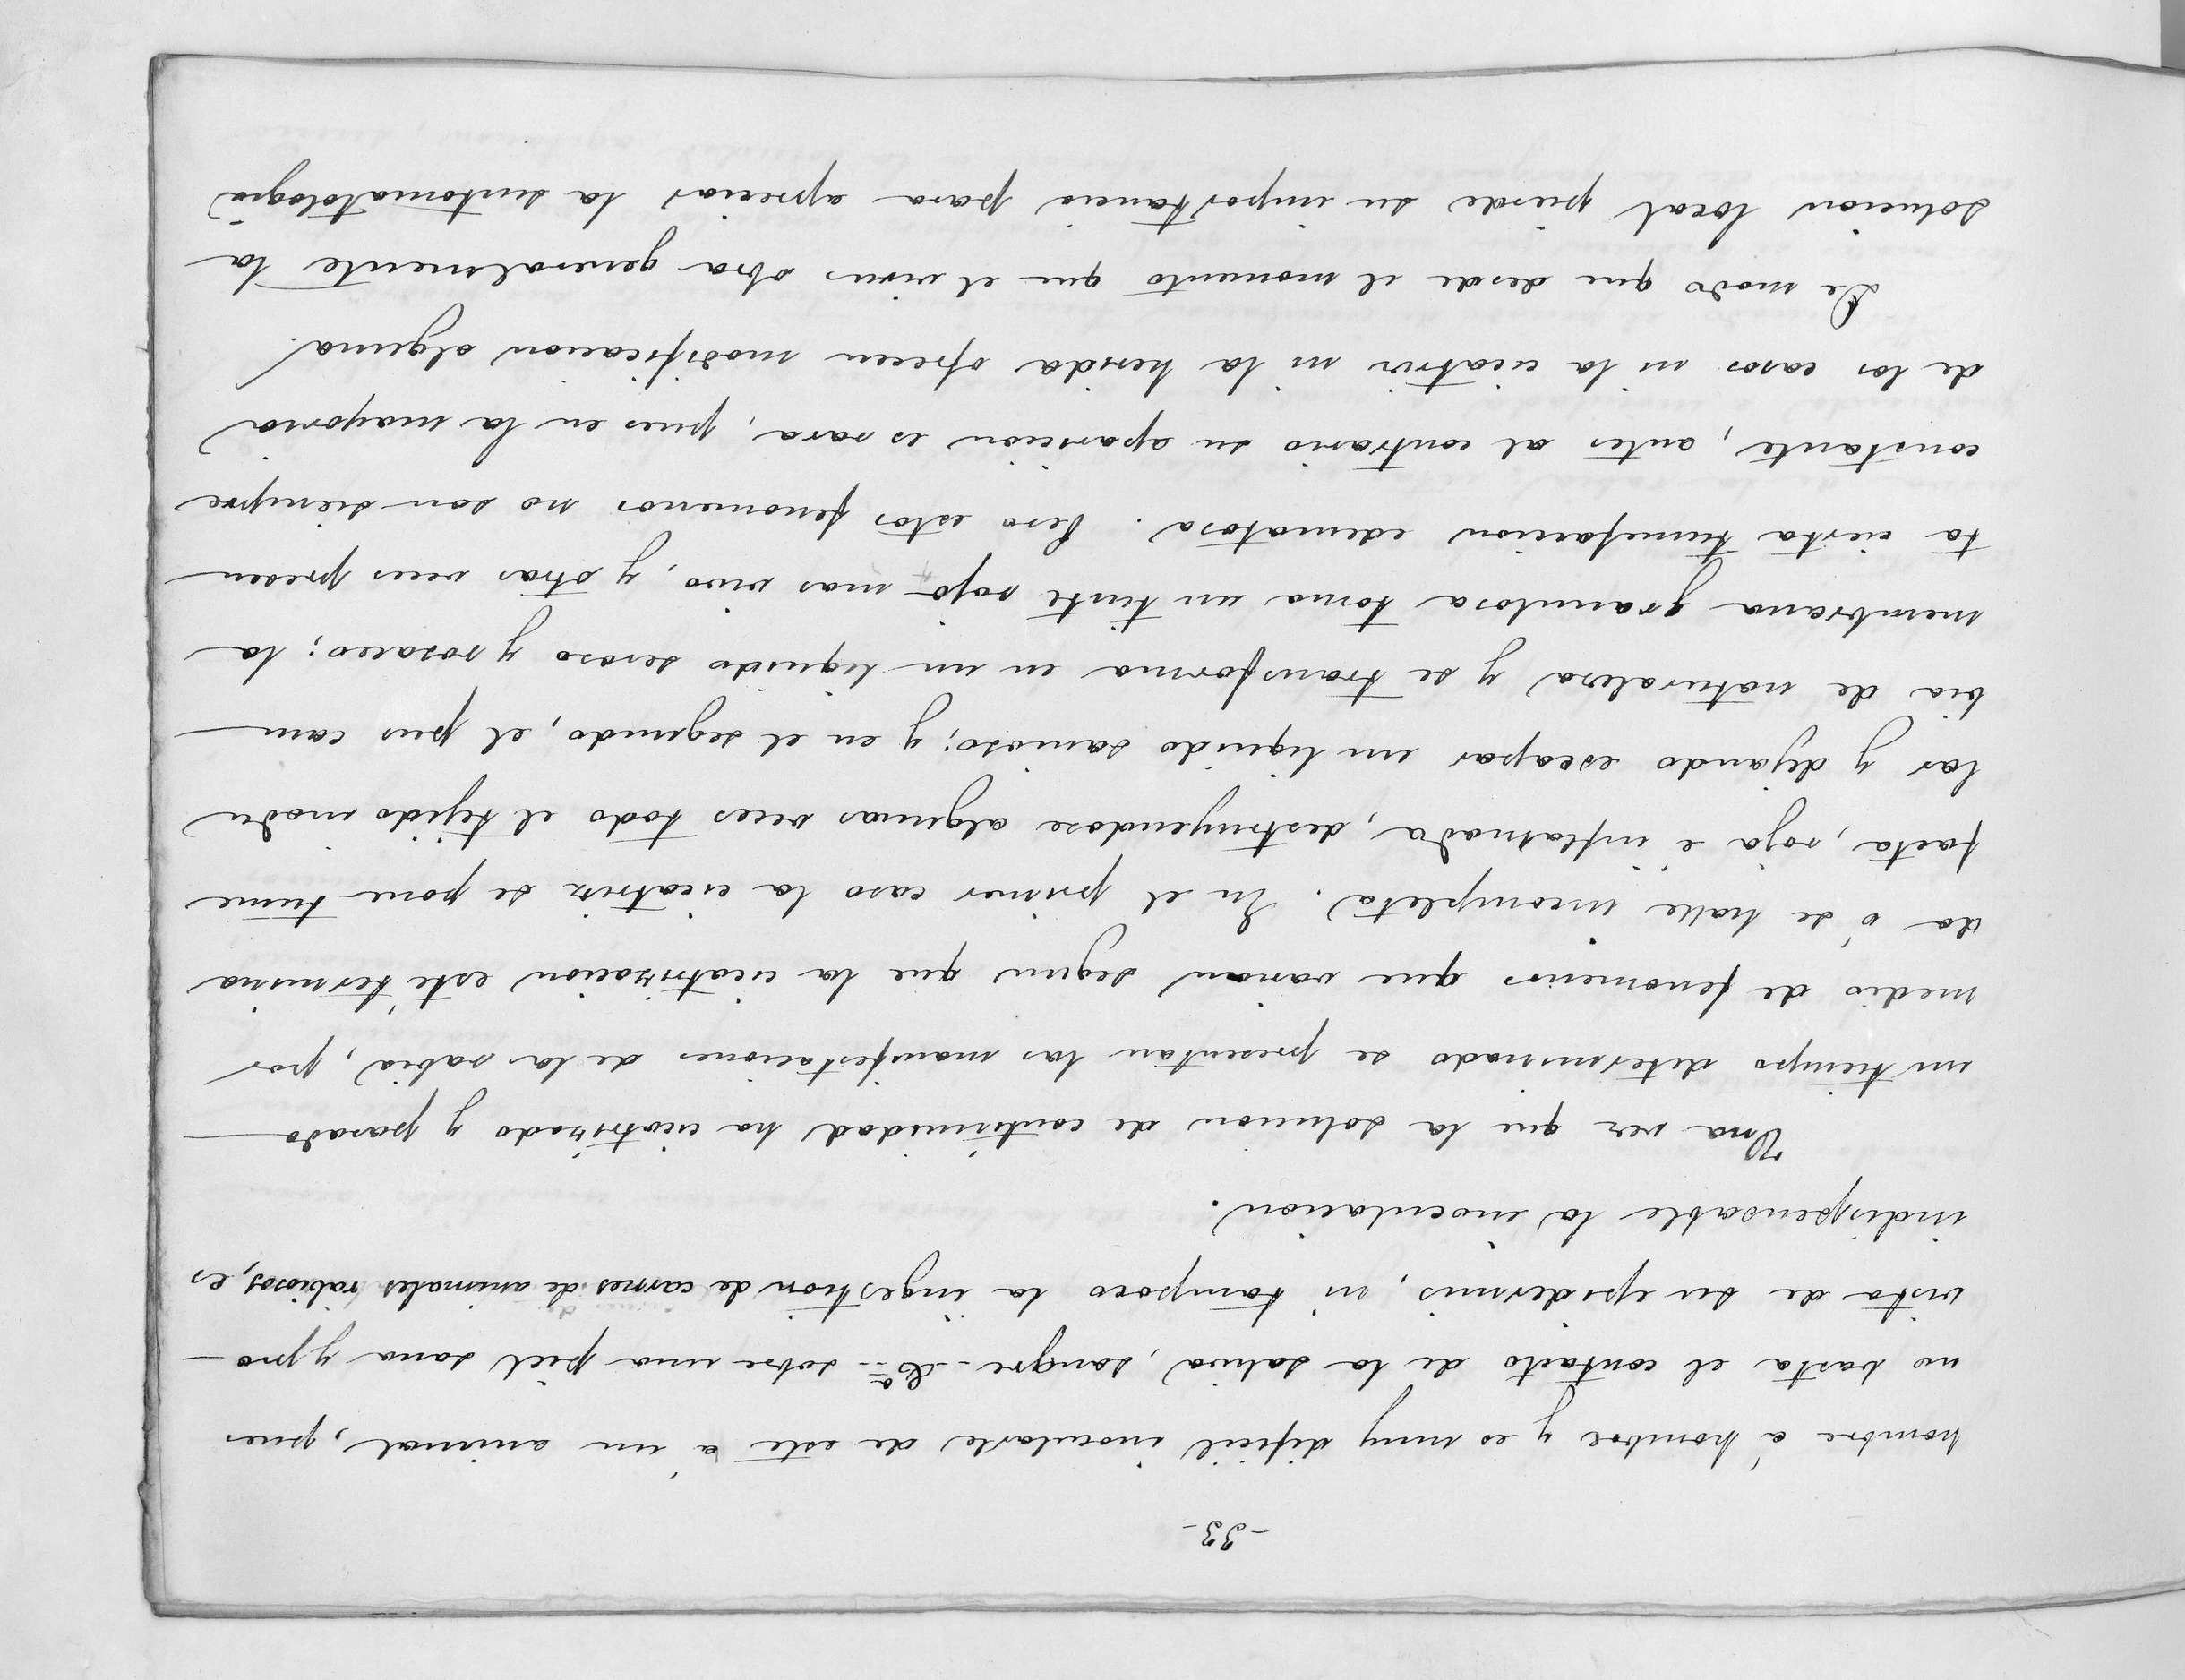 -33-
hombre á hombre y es muy dificil inocularle de este á un animal, pues
no basta el contacto de la saliva, sangre - &ª -- sobre una piel sana y pro-
vista de su epidermis, ni tampoco la ingestion de carnes de animales rabiosos, es
indispensable la inoculacion.
Una vez que la solucion de continuidad ha cicatrizado y pasado
un tiempo determinado se presentan las manifestaciones de la rabia, por
medio de fenomenos que varian segun que la cicatrizacion esté termina
da ó se halle incompleta. En el primer caso la cicatriz se pone tume
facta, roja é inflamada, destruyendose algunas veces todo el tejido modu
lar y dejando escapar un liquido sanioso; y en el segundo, el pus cam-
bia de naturaleza y se transforma en un liquido seroso y rosaceo; la
membrana granulosa toma un tinte rojo mas vivo, y otras veces presen-
ta cierta tumefaccion edematosa. Pero estos fenomenos no son siempre
constante, antes al contrario su aparicion es rara, pues en la mayoria
de los casos ni la cicatriz ni la herida ofrecen modificacion alguna.
De modo que desde el momento que el virus obra generalmente la
solucion local pierde su importancia para apreciar la sintomatologia